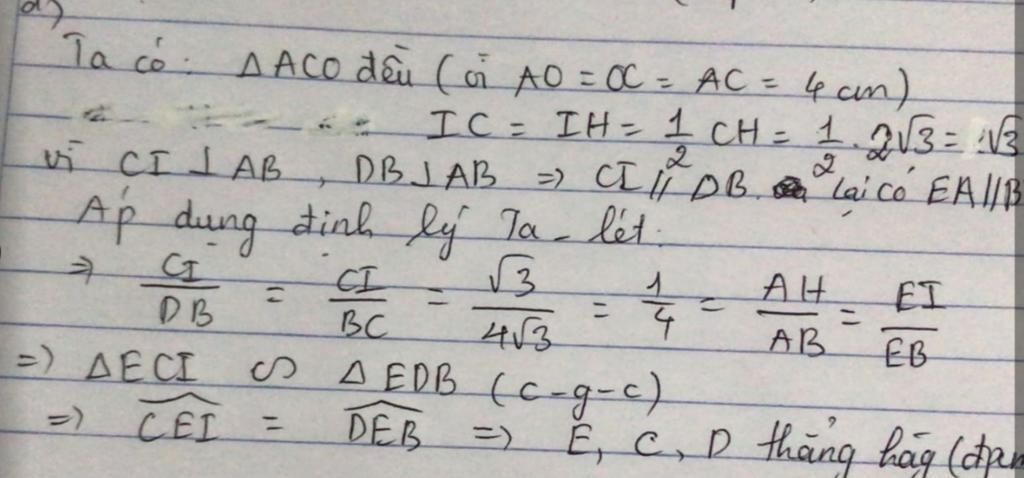 d)
Ta có: ΔACO đều (vì AO = OC = AC = 4 cm)
IC = IH = 1/2 CH = 1/2 . 2√3 = √3
vì CI ⊥ AB, DB ⊥ AB => CI // DB. lại có EA // B
Áp dụng định lý Ta-lét:
=> CI/DB = CI/BC = √3/4√3 = 1/4 = AH/AB = EI/EB
=> ΔECI ∽ ΔEDB (c-g-c)
=> CEI = DEB => E, C, D thẳng hàg (đpcm